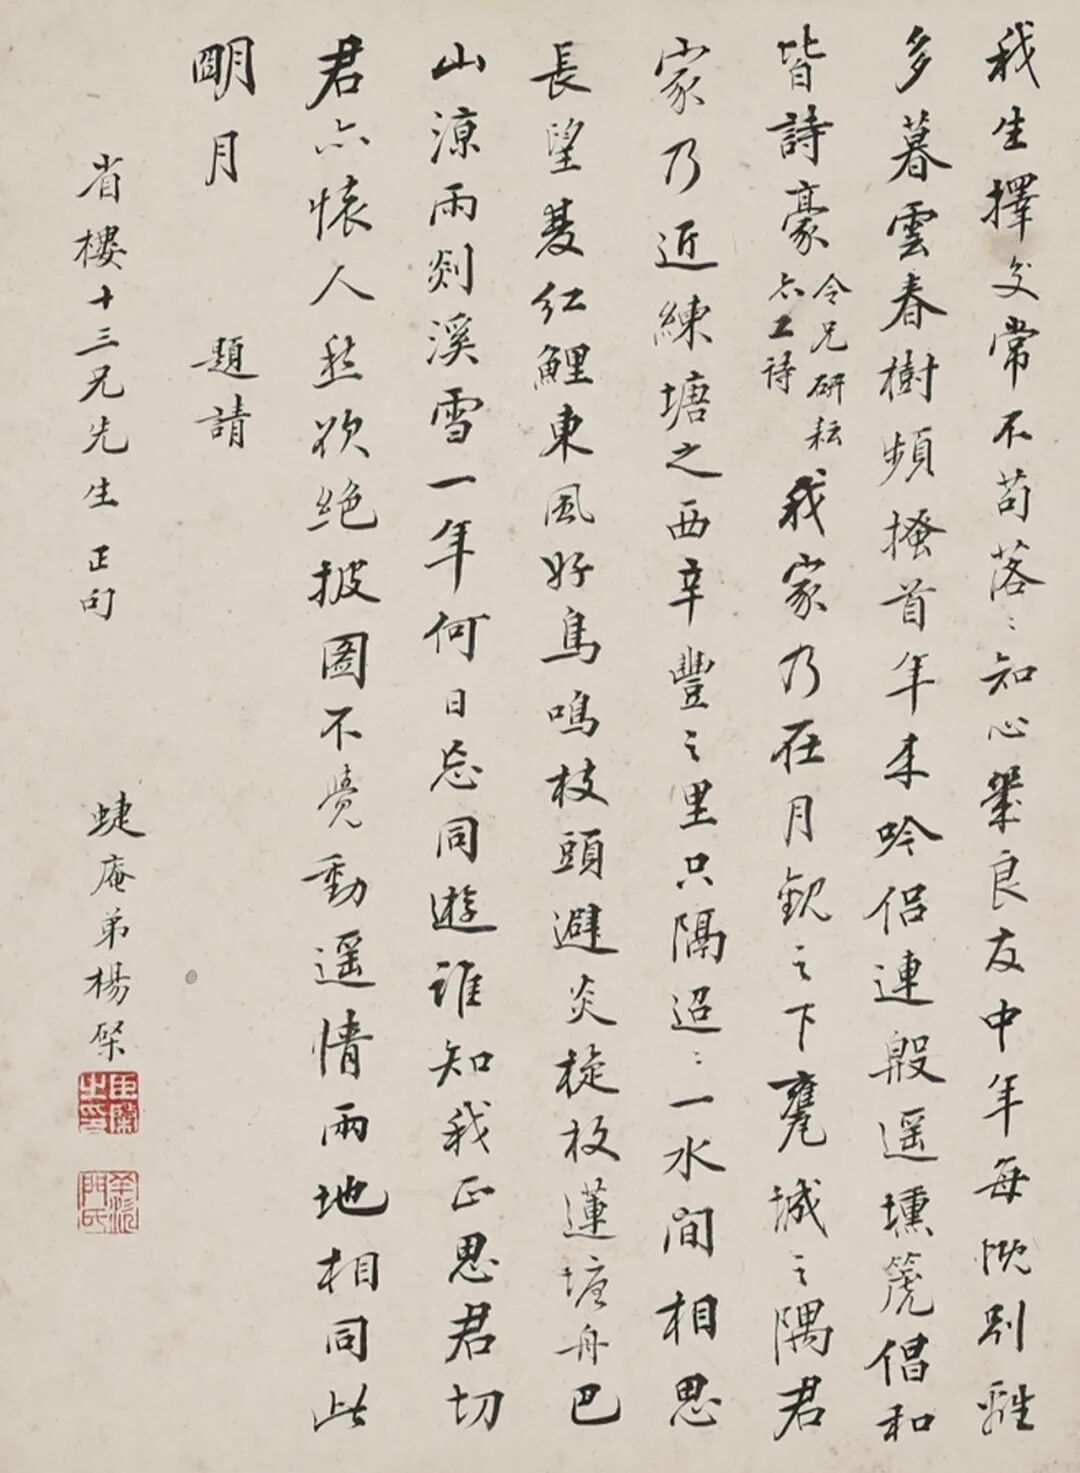 我生擇交常不苟落〻知心幾良友中年每慨別離
多暮雲春樹頻搔首年來吟侶連殷遥壎篪倡和
皆詩豪
令兄研耘
亦工詩
我家乃在月觀之下甕城之隅君
家乃近練塘之西辛豐之里只隔迢〻一水間相思
長望雙紅鯉東風好鳥鳴枝頭避炎旋放蓮塘舟巴
山涼雨剡溪雪一年何日忘同遊誰知我正思君切
君亦懷人愁欲絶披圖不覺動遥情兩地相同此
明月
題請
省樓十三兄先生 正句
蜨庵弟楊棨